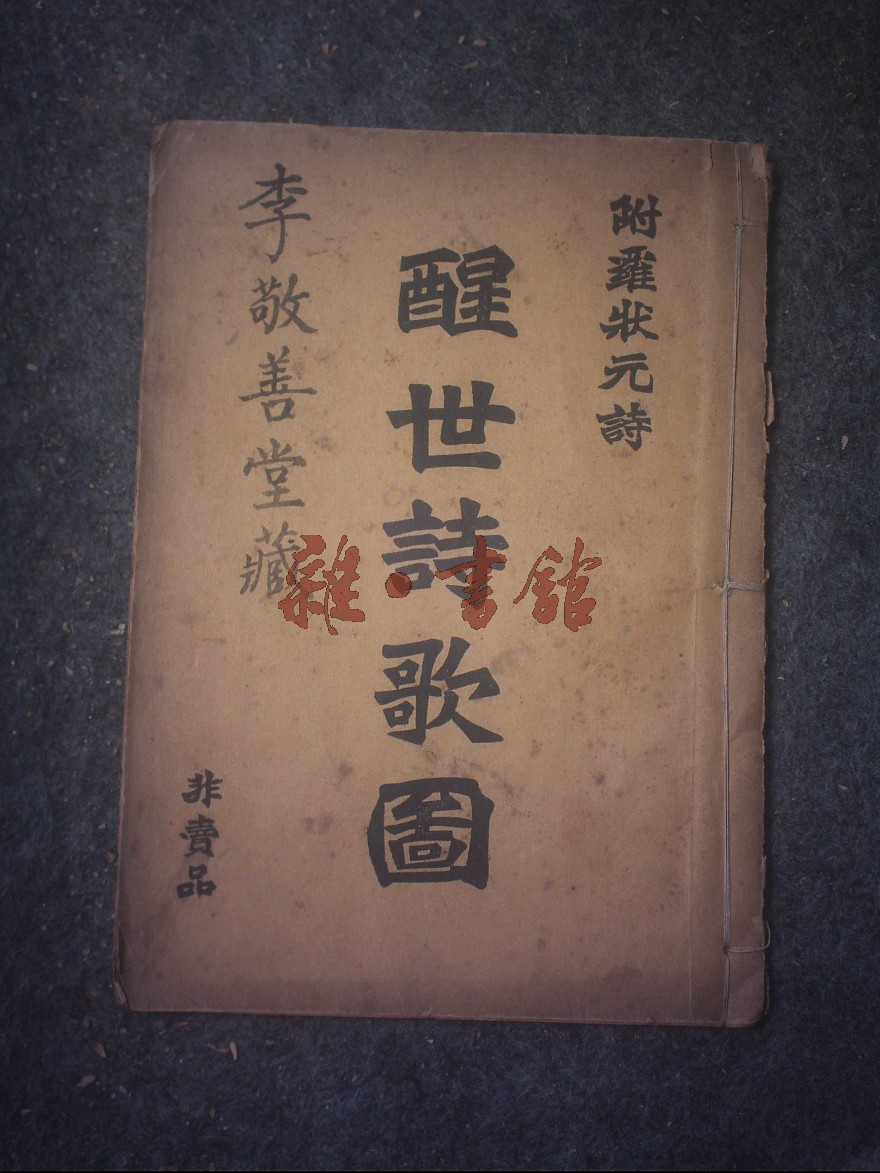 附羅狀元詩
醒世詩歌圖
李敬善堂藏
非賣品
雜·書館